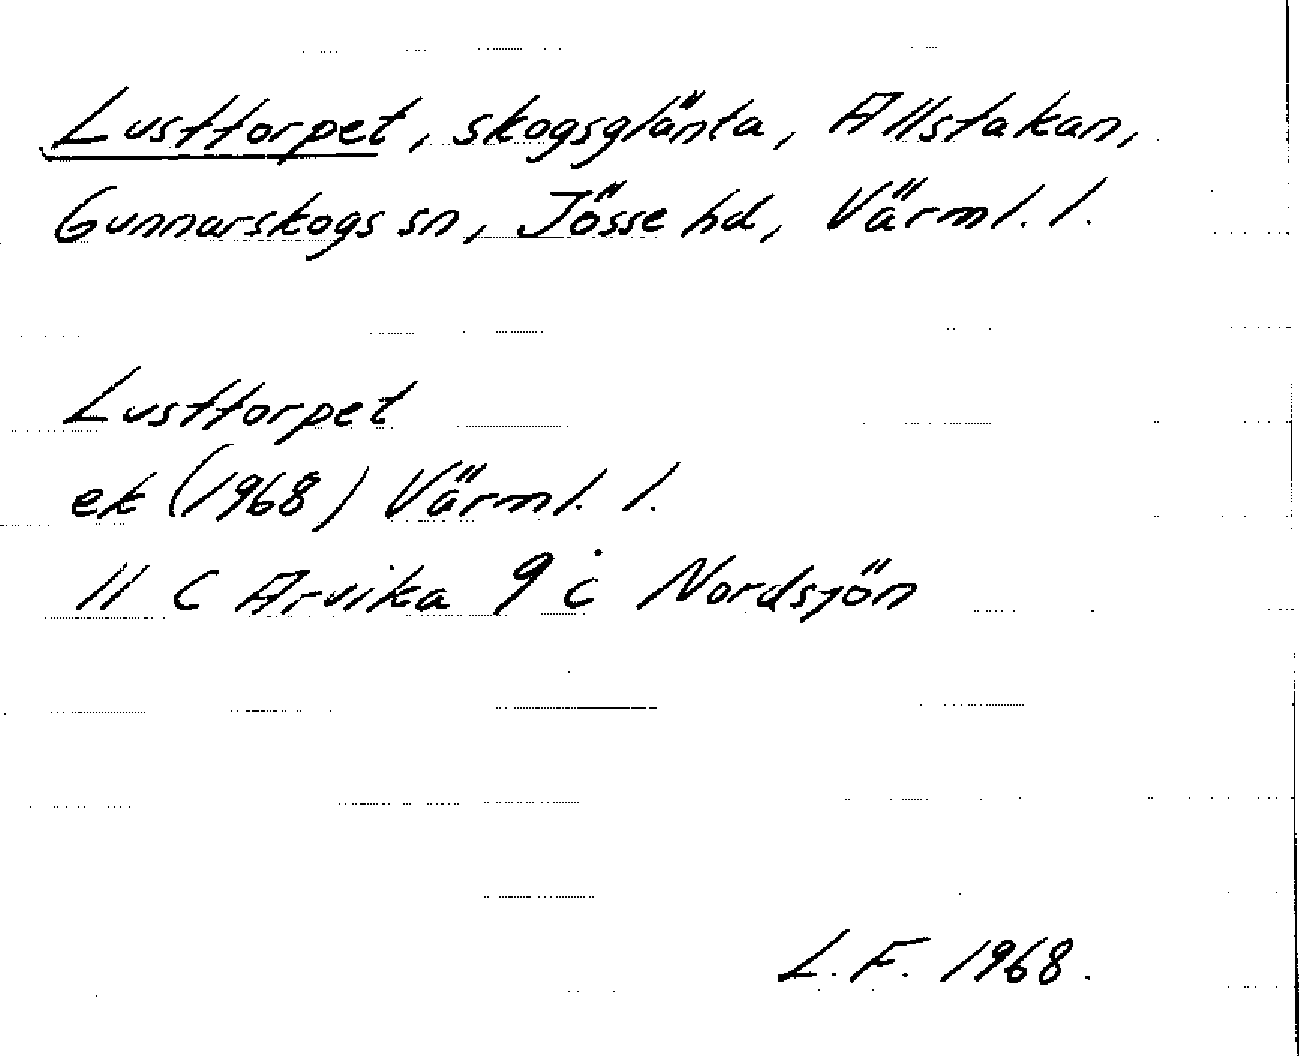 Lusttorpet, skogsglänta, Allstakan,
Gunnarskogs sn, Jösse hd, Värml. l.
Lusttorpet
ek (1968) Värml. l.
11 C Arvika 9 c Nordsjön
L. F. 1968.